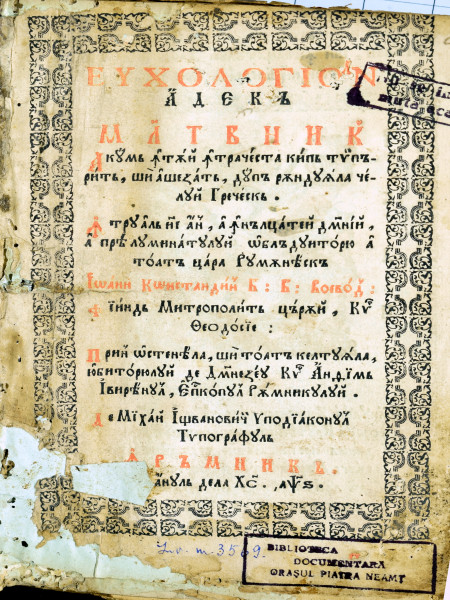 ЕУХОЛОГІѠН
А҆ДЕКЪ
МЛ҃ТВЪНИК
Акꙋмь ꙟ҆тѫй ꙟ҆трачѣста кипь тѷпъ-
рить, ши а҆шеꙁать, дꙋпъ рѫндꙋꙗла чѣ-
лꙋй Гречѣскь.
ꙟ҆ трꙋаль н҃с ан, а҆ ꙟ҆нълцатей дм҃ній,
а҆ прѣлꙋминатꙋлꙋй ѡблъдꙋиторю а҆
тоатъ цара Рꙋмѫнѣскъ
Іѡанн Кѡнстандій Б: В: Воевод:
Фїиндь Митрополить церѫй, Кѷ
Ѳеодосїе:
Прин ѡстенѣла, ши тоатъ келтꙋꙗла,
юбиторюлꙋй де Дм҃неꙁеꙋ Кѷ Анѳім
Івирѣнꙋл, Е҆пⷭ҇копꙋл Рѫмникꙋлꙋй.
Де Міхай І҆щвановичь Ѵподїаконꙋл
Типографꙋль
ꙟ҆ РЪМНИКЪ.
анꙋль дела ХС҃. ҂аѱѕ.
I.v. m. 3569.
BIBLIOTECA
DOCUMENTARĂ
ORAŞUL PIATRA NEAMŢ